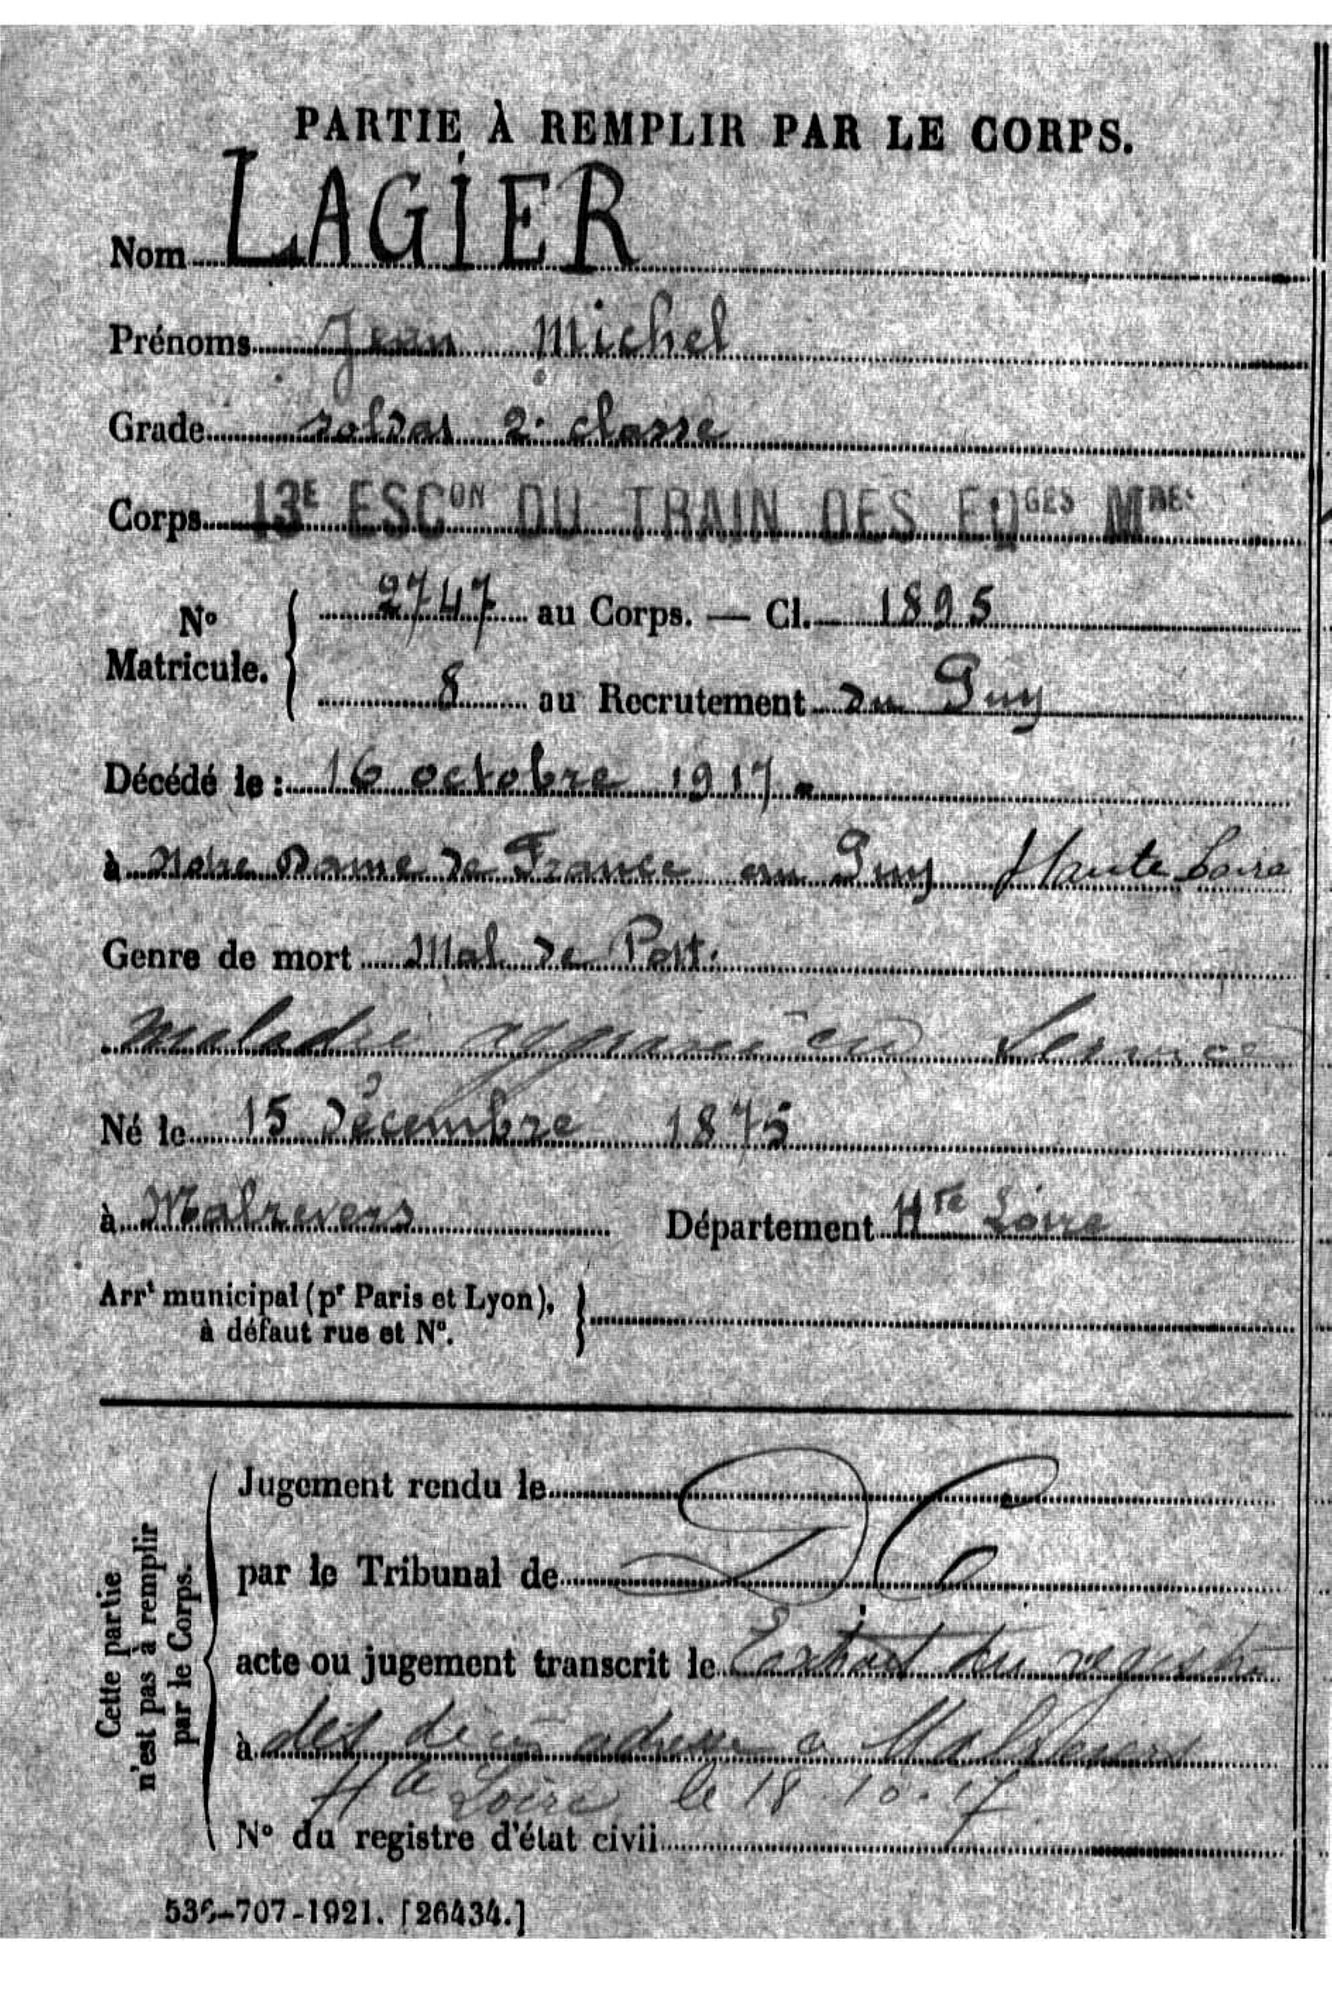 PARTIE À REMPLIR PAR LE CORPS.
Nom LAGIER
Prénoms Jean Michel
Grade soldat 2e classe
Corps 13E ESCON DU TRAIN DES EQGES MRES
No Matricule. { 2747 au Corps. — Cl. 1895
8 au Recrutement du Puy
Décédé le : 16 octobre 1917.
à Notre Dame de France au Puy Haute Loire
Genre de mort Mal. de Poit.
maladie en Service
Né le 15 Décembre 1875
à Malrevers Département Hte Loire
Arrt municipal (pr Paris et Lyon),
à défaut rue et No. }
Cette partie
n'est pas à remplir
par le Corps.
Jugement rendu le DC
par le Tribunal de
acte ou jugement transcrit le Extrait du registre
à des décès adressé a Malrevers
Hte Loire le 18.10.17
No du registre d'état civil
536-707-1921. [26434.]